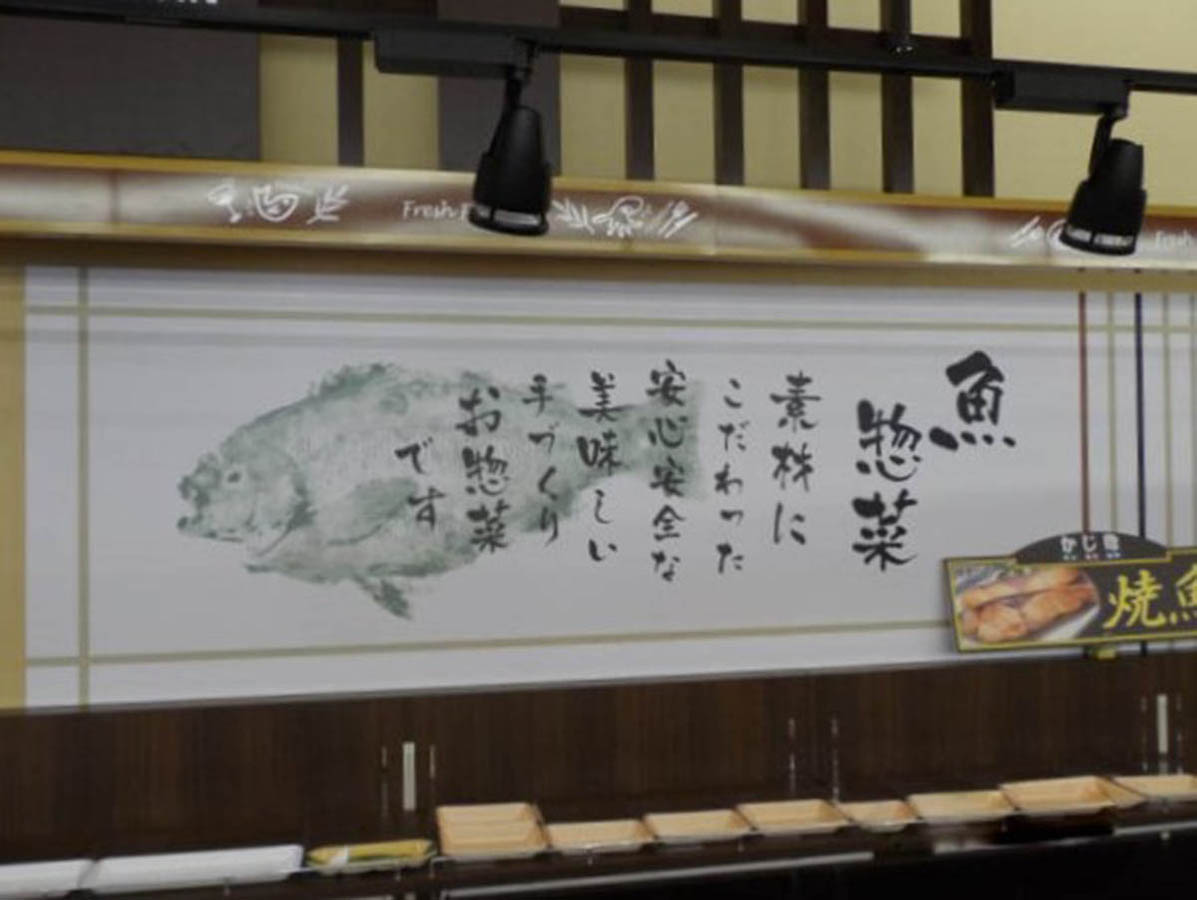 魚
惣菜
素材に
こだわった
安心安全な
美味しい
手づくり
お惣菜
です
かじき
焼魚
Fresh
Fresh